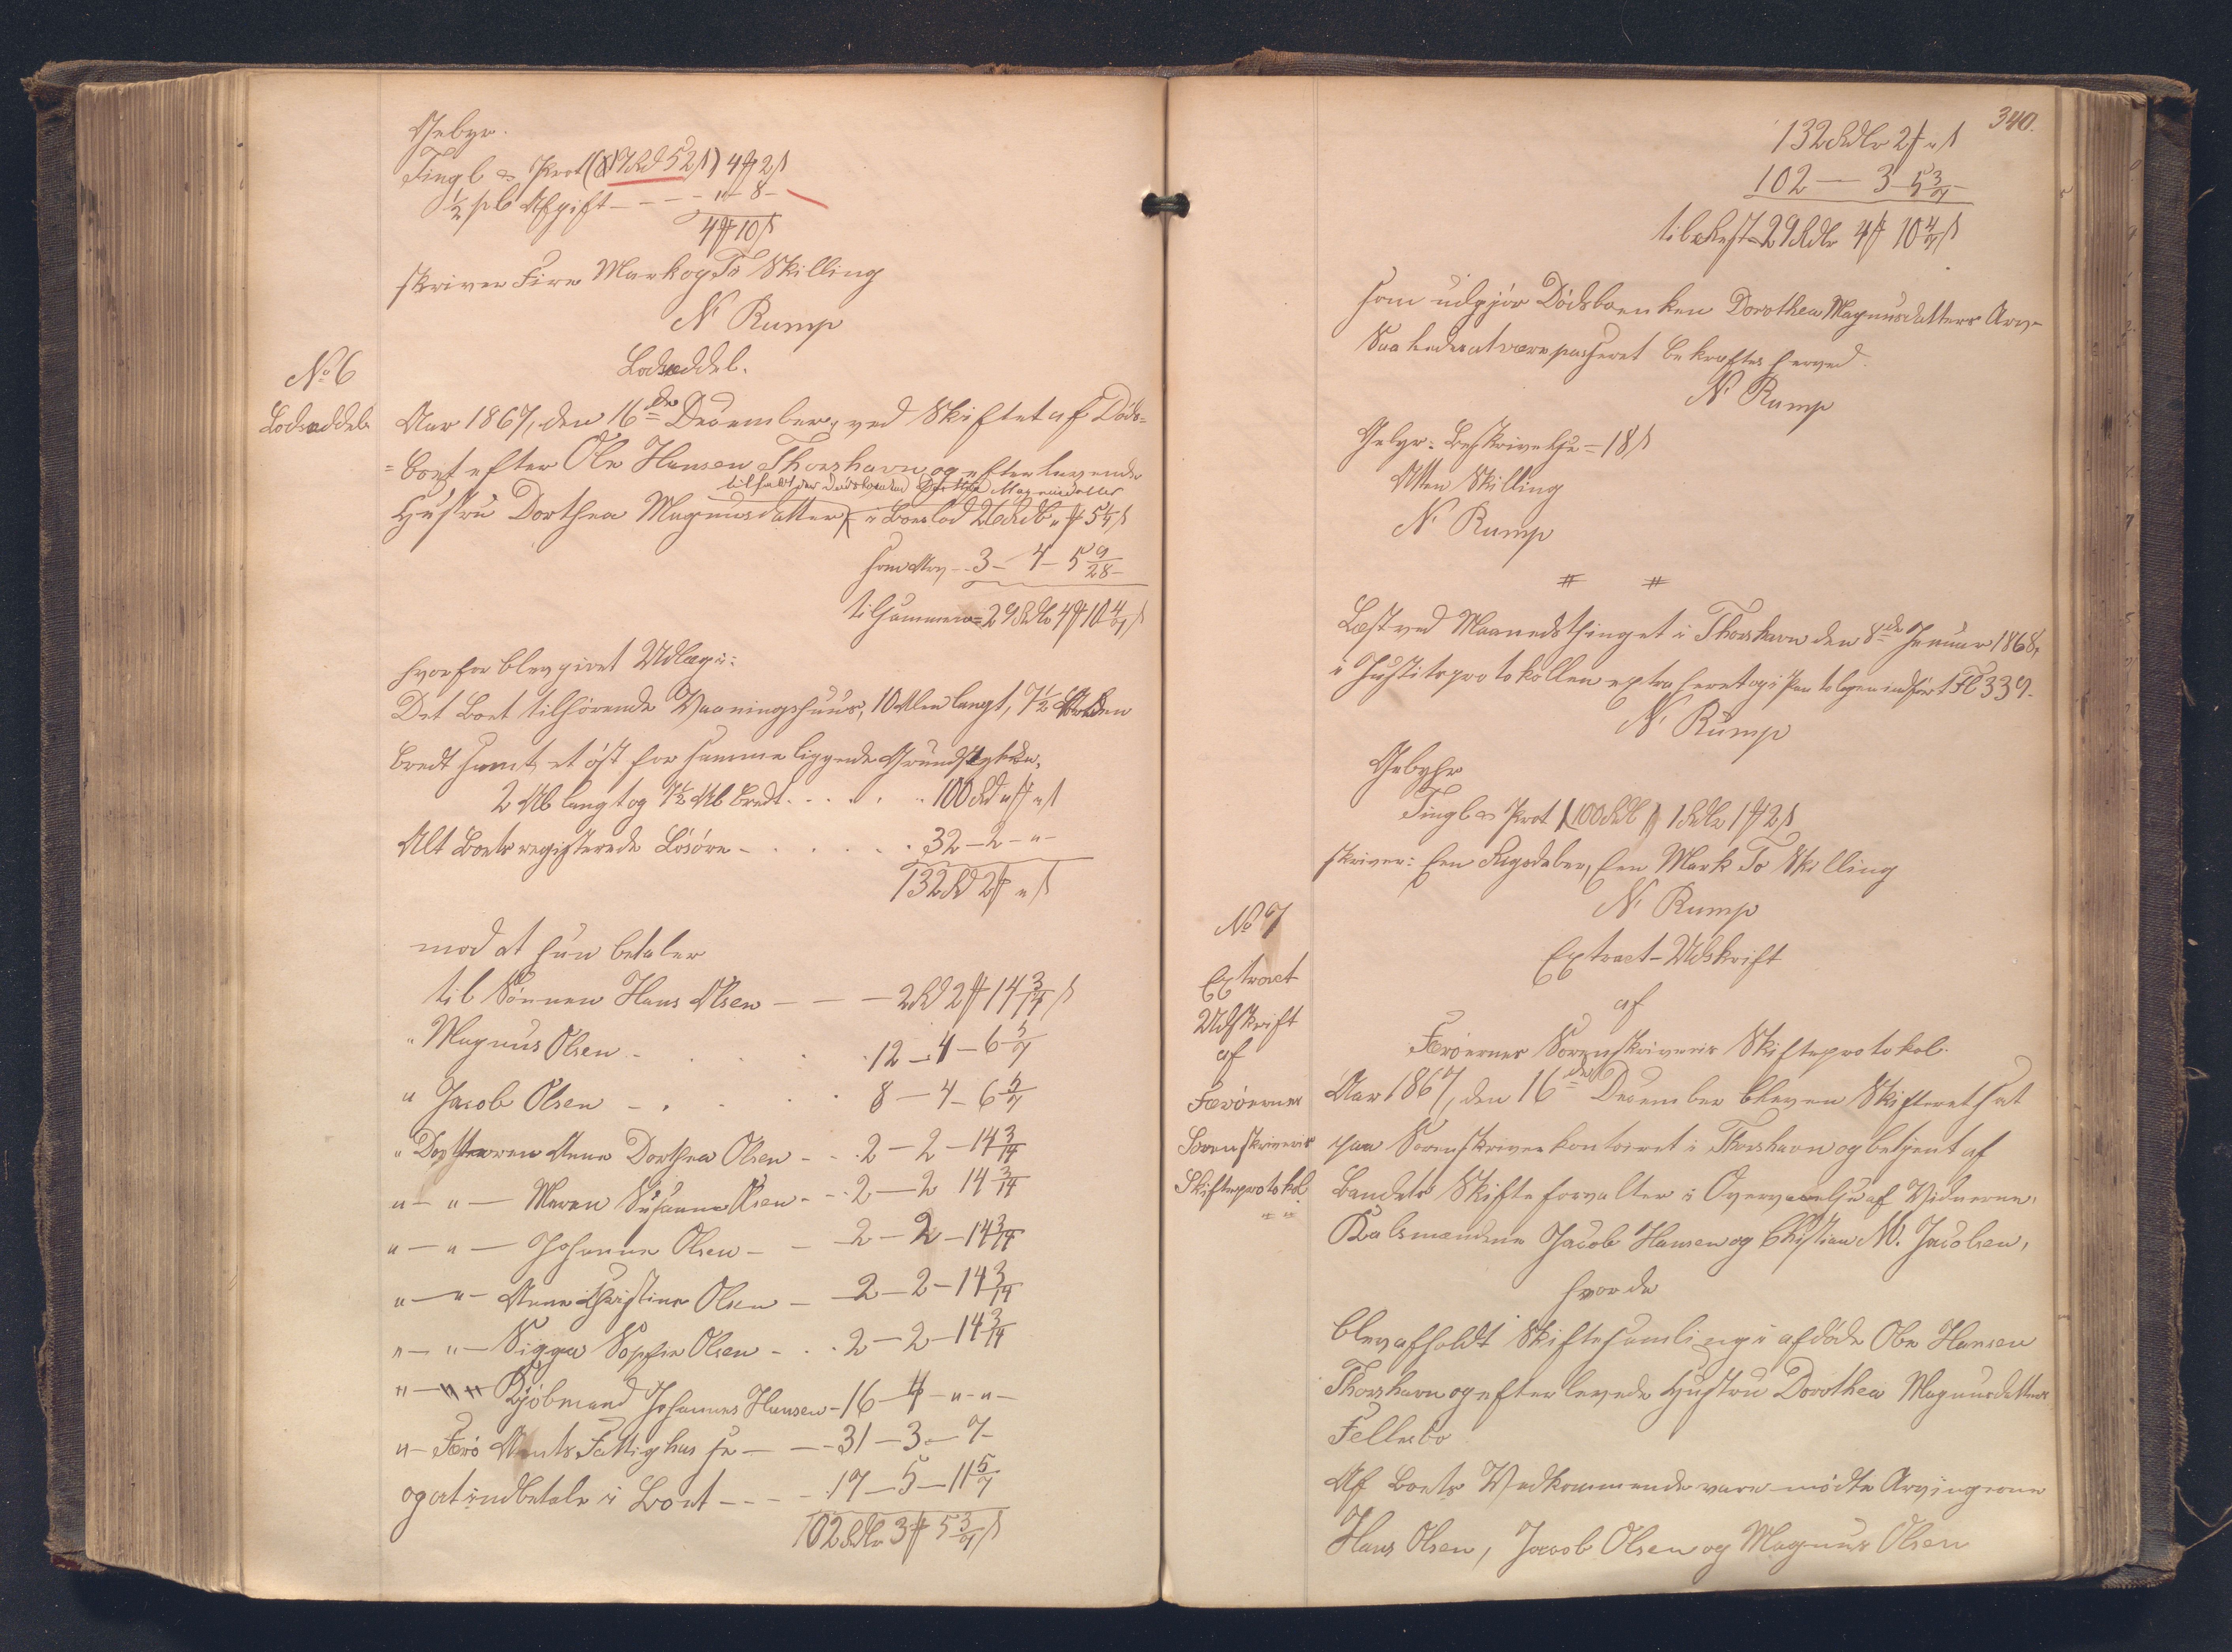 Gebyr.
Tingl & Prot (17Rd 52 s) 4 # 2 s
½ pC Afgift - - - - " - 8 -
4 # 10 s
skriver Fire Mark og To Skilling
N. Rump
No 6
Lodseddel
Lodseddel.
Aar 1867, den 16de December, ved Skiftet af Døds-
=boet efter Ole Hansen Thorshavn og efterlevende
tilfaldt der Dødsboenken Dorthea Magnusdatter
Hustru Dorthea Magnusdatter, i Boeslod 26Rdl " # 5 1/4 s
som Arv - - 3 - 4 - 5 9/28 -
tilsammen = 29Rdl 4 # 10 4/7 s
hvorfor blev givet Udlæg i:
Det Boet tilhørende Vaaningshuus, 10 Alen langt, 7½ Alen
bredt samt et øst for samme liggende Grundstykke,
2 Al langt og 7½ Al bredt . . . . . 100Rd " # " s
Alt Boets registerede Løsøre - . . . . . 32 - 2 - " -
132Rd 2 # " s
mod at hun betaler
til Sønnen Hans Olsen - - - 2Rd 2 # 14 3/14 s
" Magnus Olsen - . . . 12 - 4 - 6 5/7
" Jacob Olsen - . . . 8 - 4 - 6 5/7
" Dottteren Anna Dorthea Olsen - - . 2 - 2 - 14 3/14
" - " - Maren Susanne Olsen - - . 2 - 2 14 3/14
" - " - Johanne Olsen - - 2 - 2 - 14 3/14
" - " - Anne Christine Olsen - 2 - 2 - 14 3/14
" - " - Sigga Sophie Olsen - . . 2 - 2 - 14 3/14
" - " " Kjøbmand Johannes Hansen - 16 - 4 - " - " -
" - Færø Amts Fattighus - - - 31 - 3 - 7 -
og at indbetale i Boet - - - - 17 - 5 - 11 5/7
102Rdl 3 # 5 3/7 s
340.
132Rdlr 2 # " s
102 - 3 - 5 3/7 -
tilRest 29Rdlr 4 # 10 4/7 s
som udgjør Dødsboenken Dorothea Magnusdatters Arv -
Saaledes at være passeret bekræftes herved.
N. Rump
Gebyr: Beskrivelse = 18 s
Atten Skilling
N. Rump
# #
Læst ved Maanedsthinget i Thorshavn den 8de Januar 1868,
i Justitsprotokollen extraheret og i Pantebogen indført Fl 339.
N. Rump
Gebyhr
Tingl & Prot (100Rdl) 1Rdlr 1 # 2 s
skriver: Een Rigsdaler, Een Mark To Skilling
N. Rump
No 7
Extract
Udskrift
af
Færøernes
Sorenskriveris
Skifteprotokol
" "
Extract-Udskrift
af
Færøernes Sorenskriveris Skifteprotokol.
Aar 1867, den 16de December blev en Skifteret sat
paa Sorenskriverkontoiret i Thorshavn og betjent af
Landets Skifteforvalter i Overværelse af Vidnerne,
Kalsmændene Jacob Hansen og Christian M. Jacobsen,
hvorda
blev afholdt Skiftesamling i afdøde Ole Hansen
Thorshavn og efterlevede Hustru Dorothea Magnusdatters
Fellesbo
Af Boets Vedkommende vare mødte Arvingerne
Hans Olsen, Jacob Olsen og Magnus Olsen